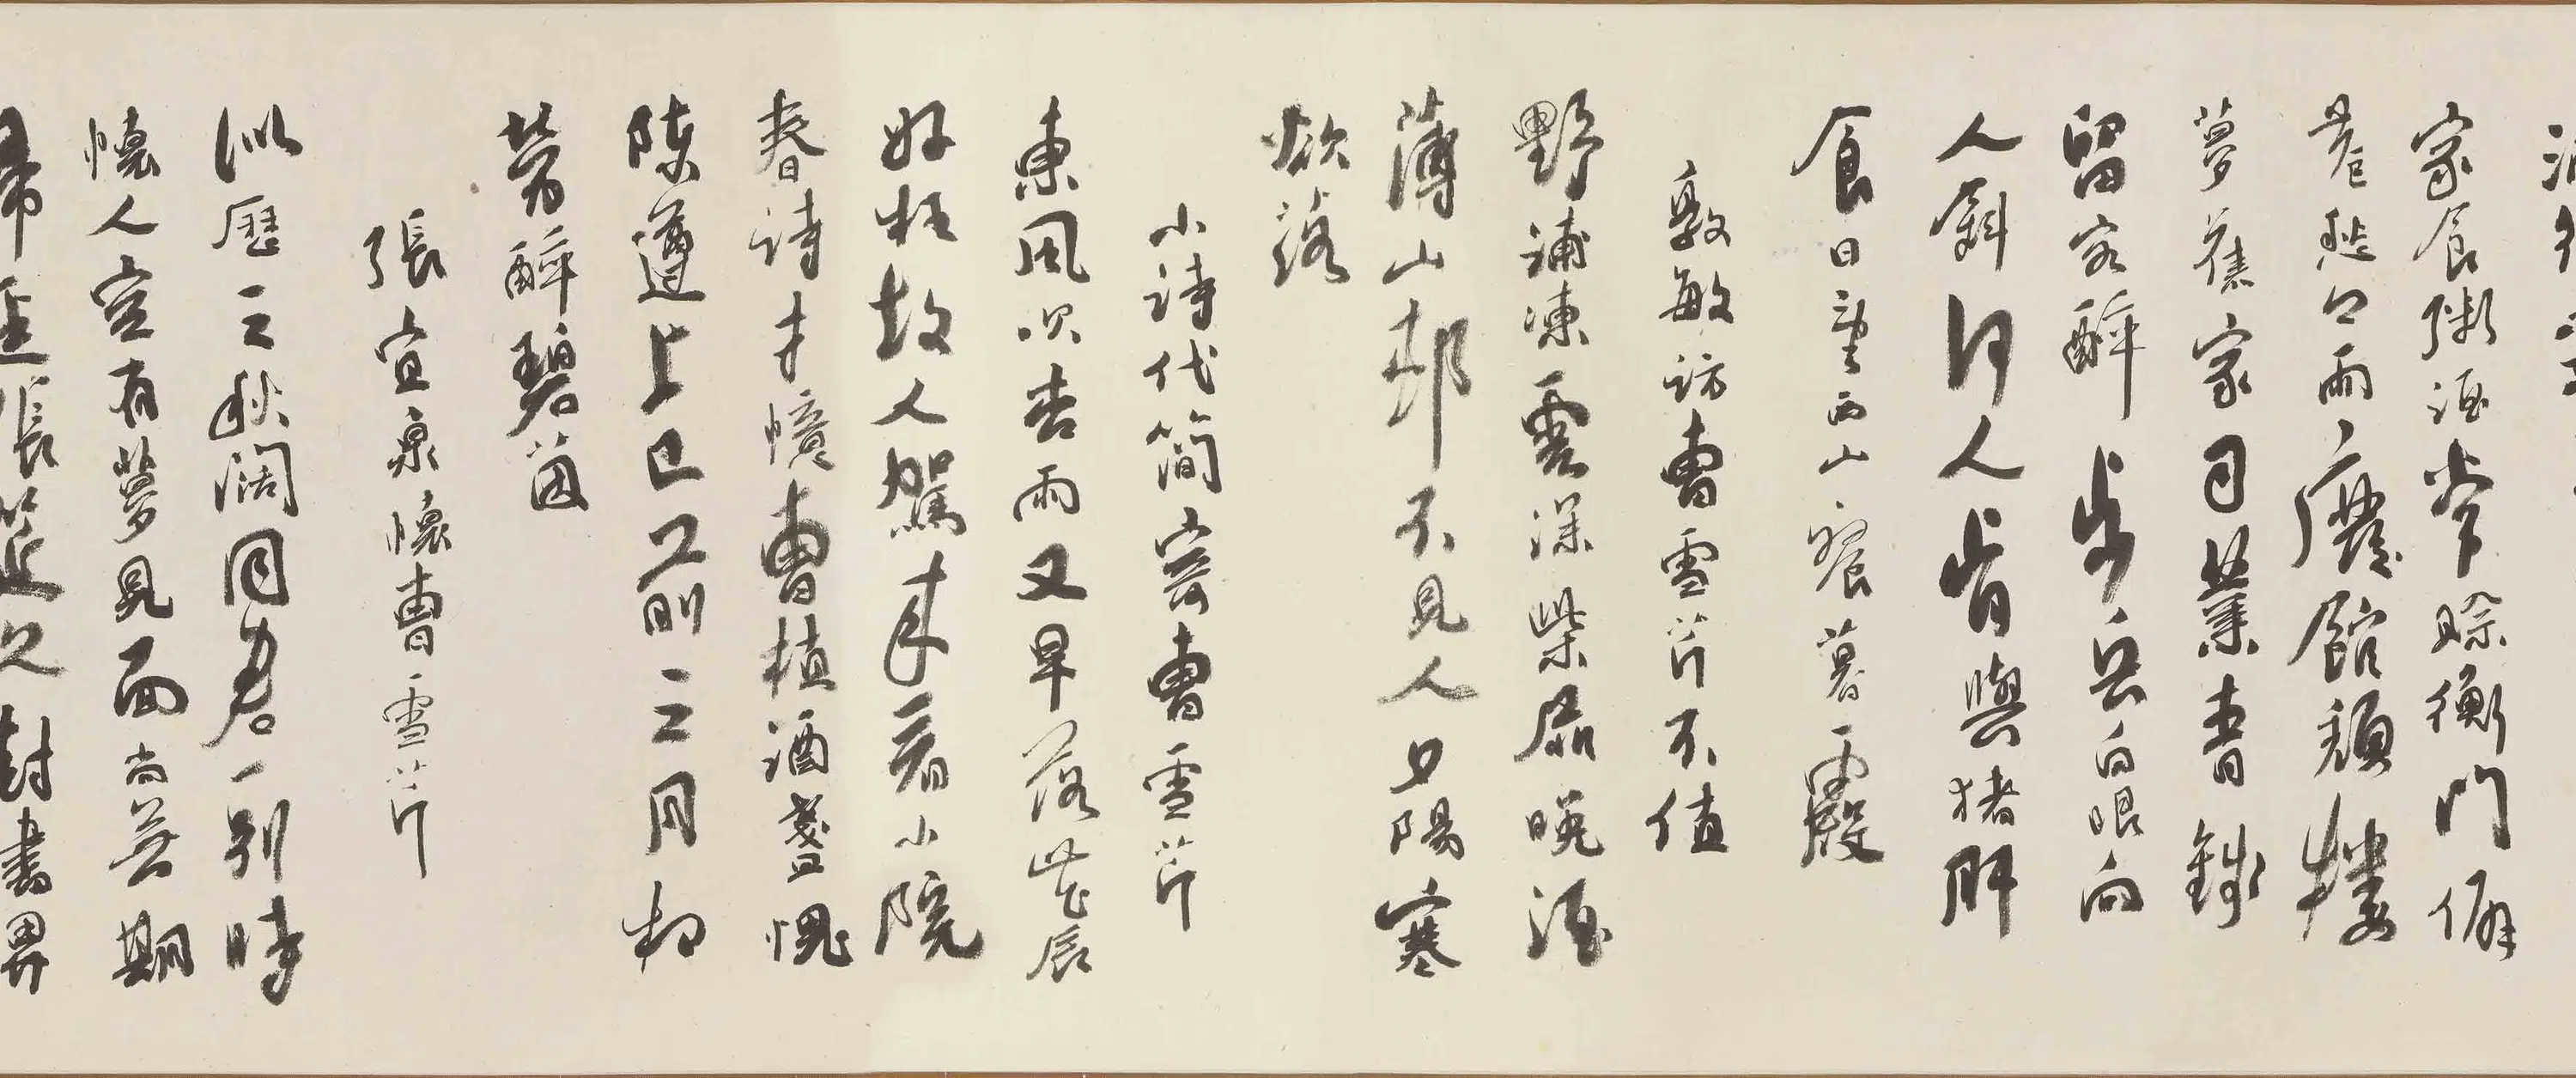 家食粥酒常賒衡門僻
巷愁今雨廢館頹樓
夢舊家司業青錢
留客醉步兵白眼向
人斜何人肯與猪肝
食日望西山餐暮霞
敦敏訪曹雪芹不值
野浦凍雲深柴扉晚酒
薄山邨不見人夕陽寒
欲落
小詩代簡寄曹雪芹
東風吹杏雨又早落花辰
好枉故人駕來看小院
春詩才憶曹植酒盞愧
陳遵上巳前三月相
勞醉碧茵
張宜泉懷曹雪芹
似歷三秋闊同君一別時
懷人空有夢見面尚無期
掃逕張筵久封書畀